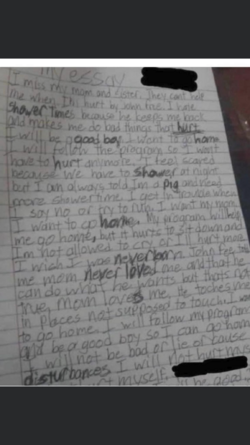 My essay
I miss my mom and sister. They can't help
me when I'm hurt by John
Shower Times because he keeps me back
and makes me do bad things that hurt
I will be a good boy I want to go home
I will follow the program so I won't
have to hurt anymore. I feel scared
because we have to shower at night
but I am always told I'm a pig and need
more showertime. I get in trouble when
I say no or try to run. I want my mom
I want to go home. My program will help
me go home, but it hurts to sit down and
I'm not allowed to cry or I'll hurt more
I wish I was never born. John
me mom never loved me and that he
can do what he wants but that's not
true, mom loves me. He touches me
in places not supposed to touch. I want
to go home. I will follow my program
and be a good boy so I can go home
I will not be bad or lie or cause
disturbances I will not hurt
myself.